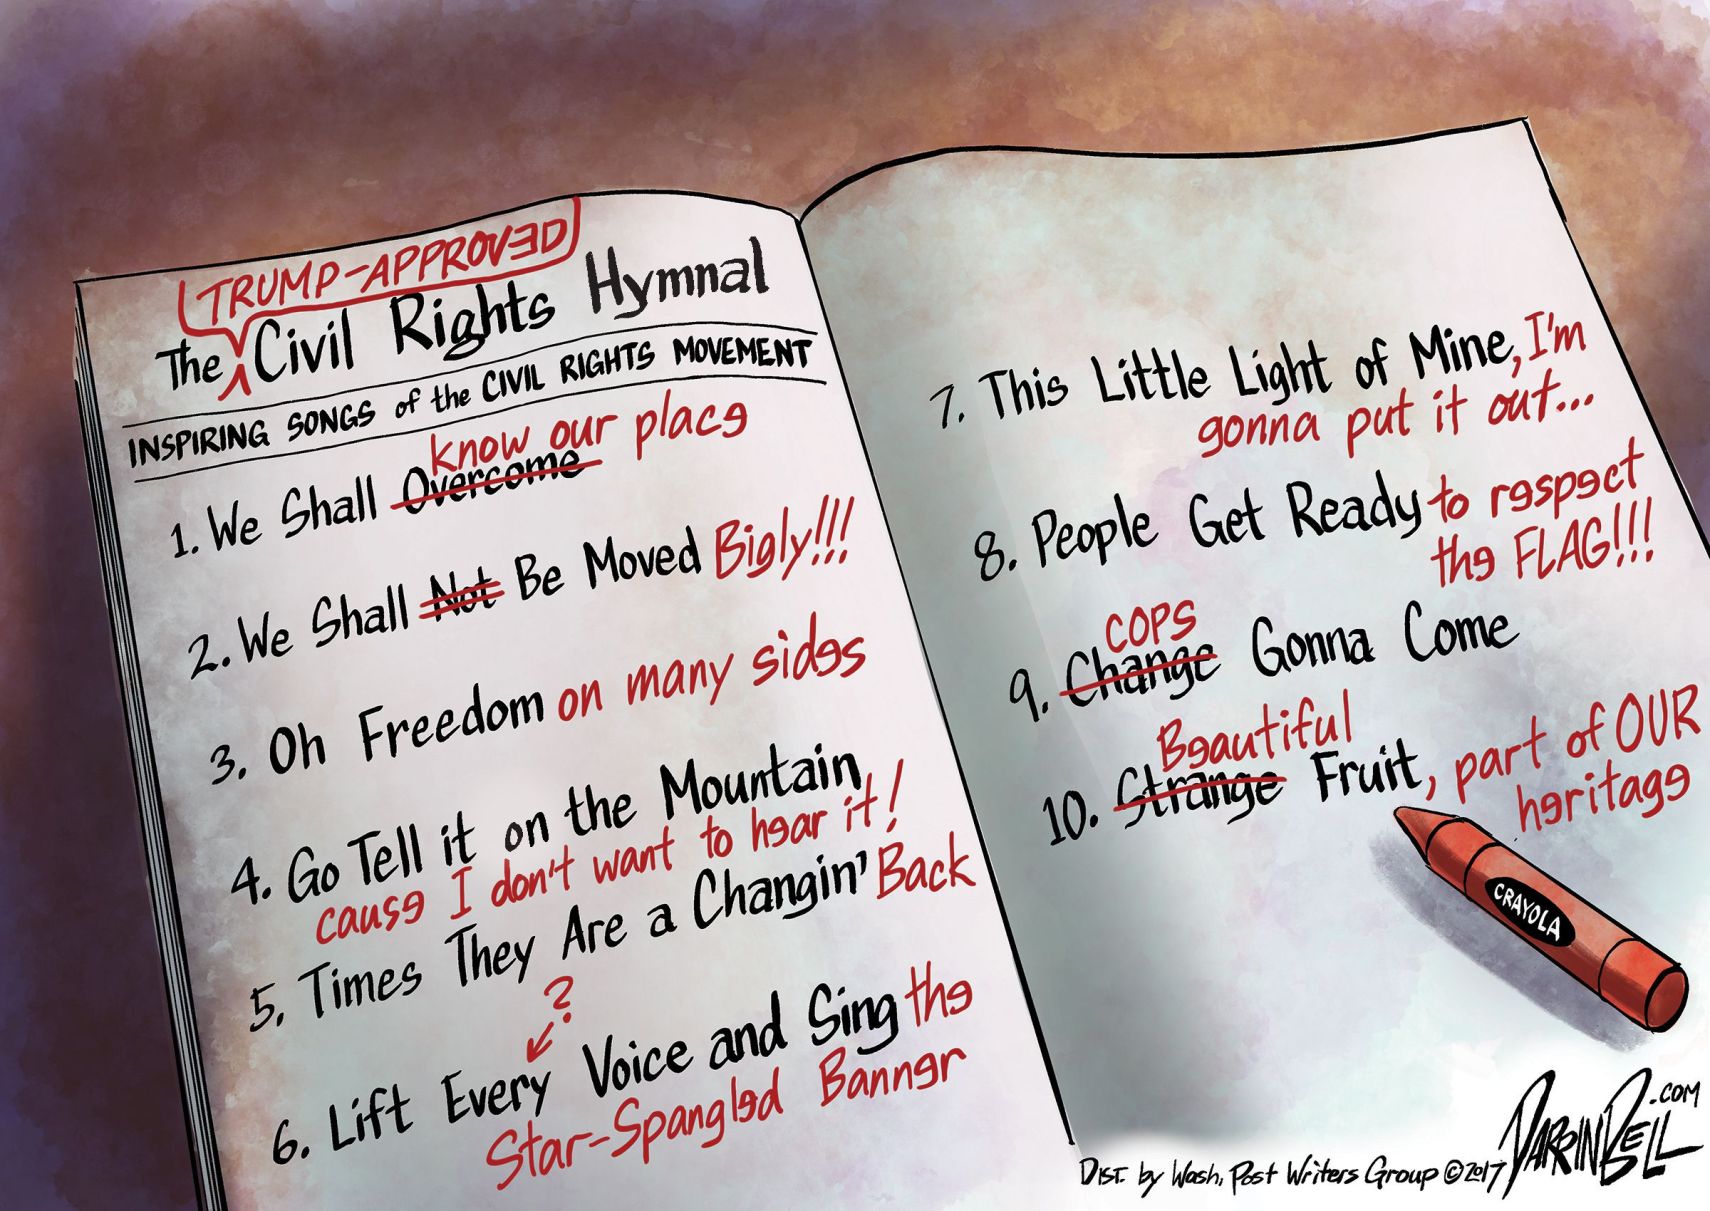 TRUMP-APPROVED
The Civil Rights Hymnal
INSPIRING SONGS of the CIVIL RIGHTS MOVEMENT
know our place
1. We Shall Overcome
2. We Shall Not Be Moved Bigly!!!
3. Oh Freedom on many sides
4. Go Tell it on the Mountain
cause I don't want to hear it!
5. Times They Are a Changin' Back
?
6. Lift Every Voice and Sing the
Star-Spangled Banner
7. This Little Light of Mine, I'm
gonna put it out...
8. People Get Ready to respect
the FLAG!!!
COPS
9. Change Gonna Come
Beautiful
10. Strange Fruit, part of OUR
heritage
CRAYOLA
DARRINBELL.COM
DIST. by Wash. Post Writers Group © 2017